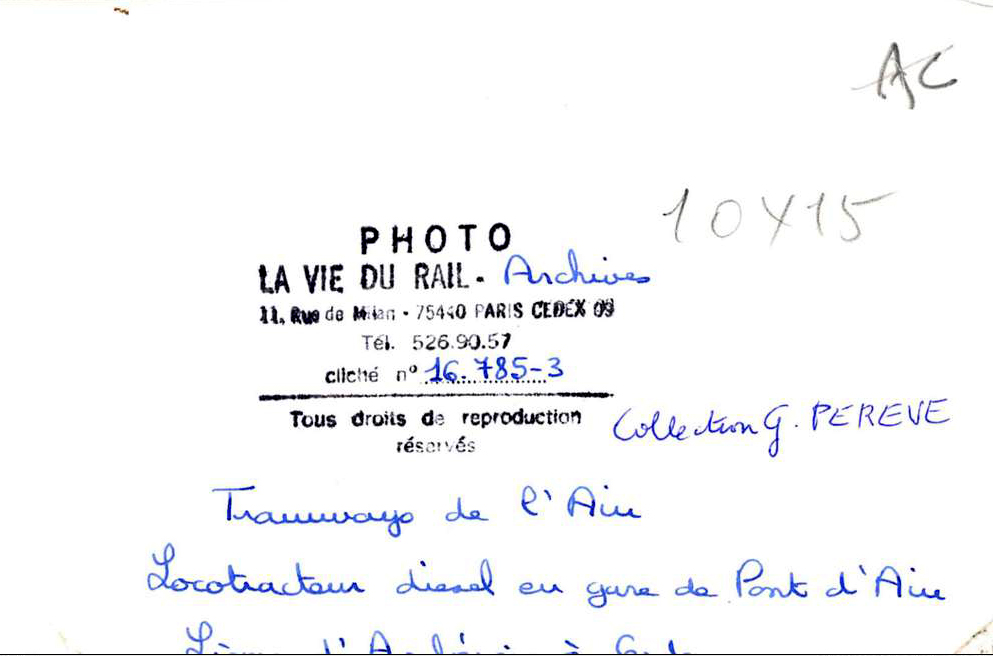 AC
10X15
PHOTO
LA VIE DU RAIL - Archives
11, Rue de Milan - 75440 PARIS CEDEX 09
Tél. 526.90.57
cliché n° 16.785-3
Tous droits de reproduction
réservés
Collection G. PEREVE
Tramways de l'Ain
Locotracteur diesel en gare de Pont d'Ain
Ligne d'Ambérieu à